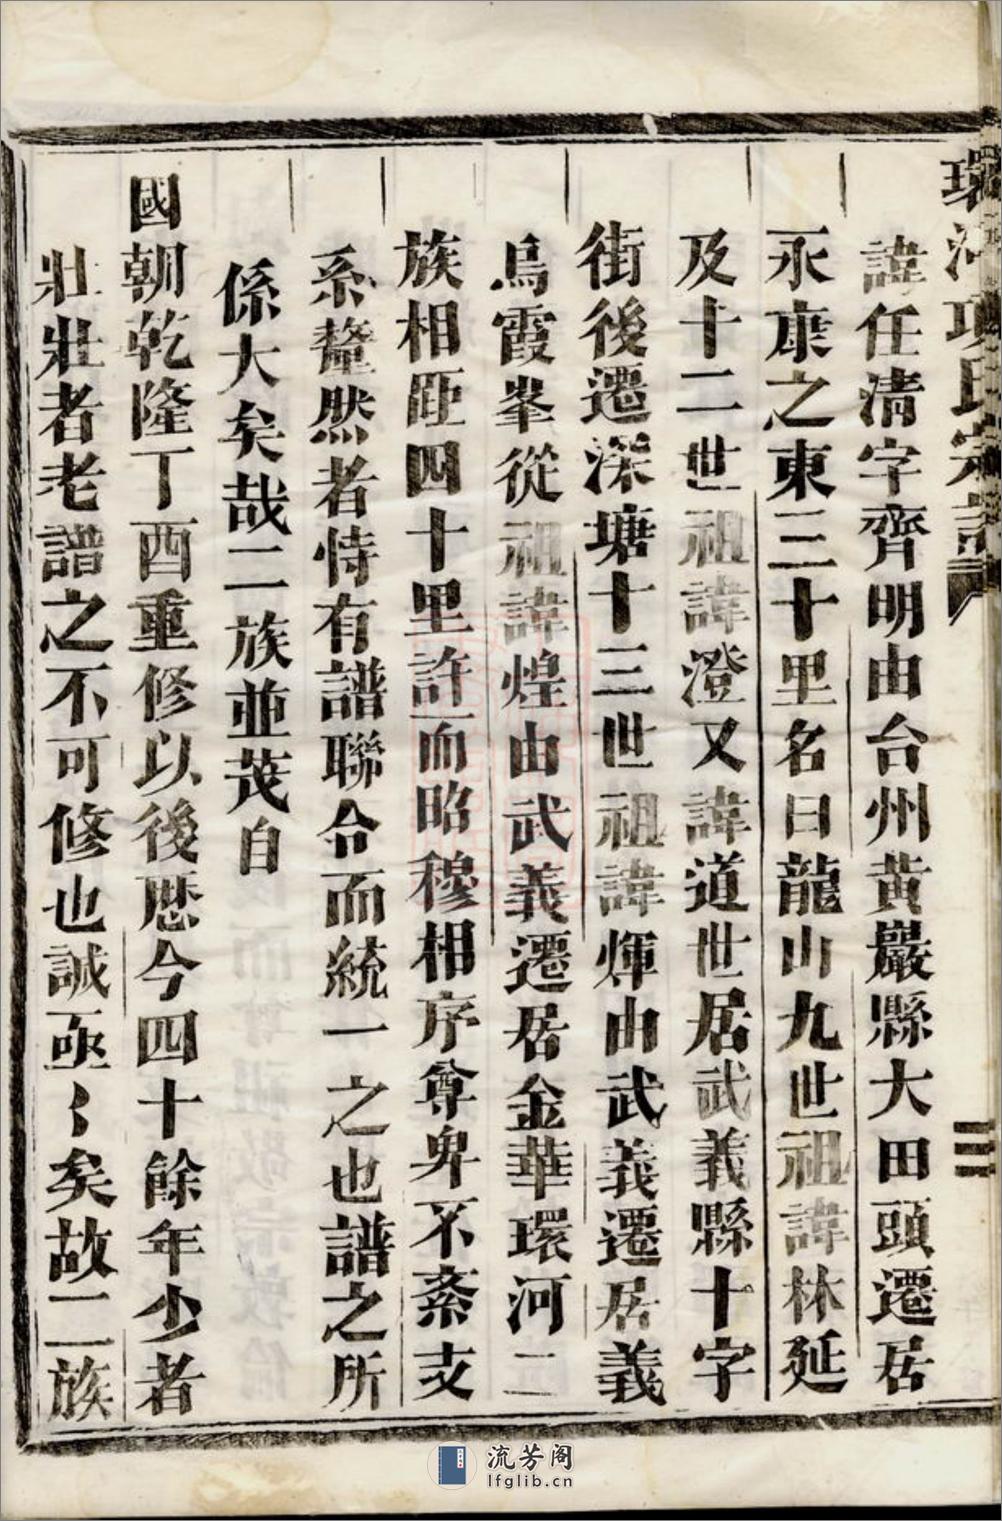 環河項氏宗譜
三
諱任清字齊明由台州黃巖縣大田頭遷居
永康之東三十里名曰龍山九世祖諱林延
及十二世祖諱澄又諱道世居武義縣十字
街後遷深塘十三世祖諱煇由武義遷居義
烏霞峯從祖諱煌由武義遷居金華環河二
族相距四十里許而昭穆相序尊卑不紊支
系釐然者恃有譜聯合而統一之也譜之所
係大矣哉二族並茂自
國朝乾隆丁酉重修以後歷今四十餘年少者
壯壯者老譜之不可修也誠亟〻矣故二族
流芳阁
lfglib.cn